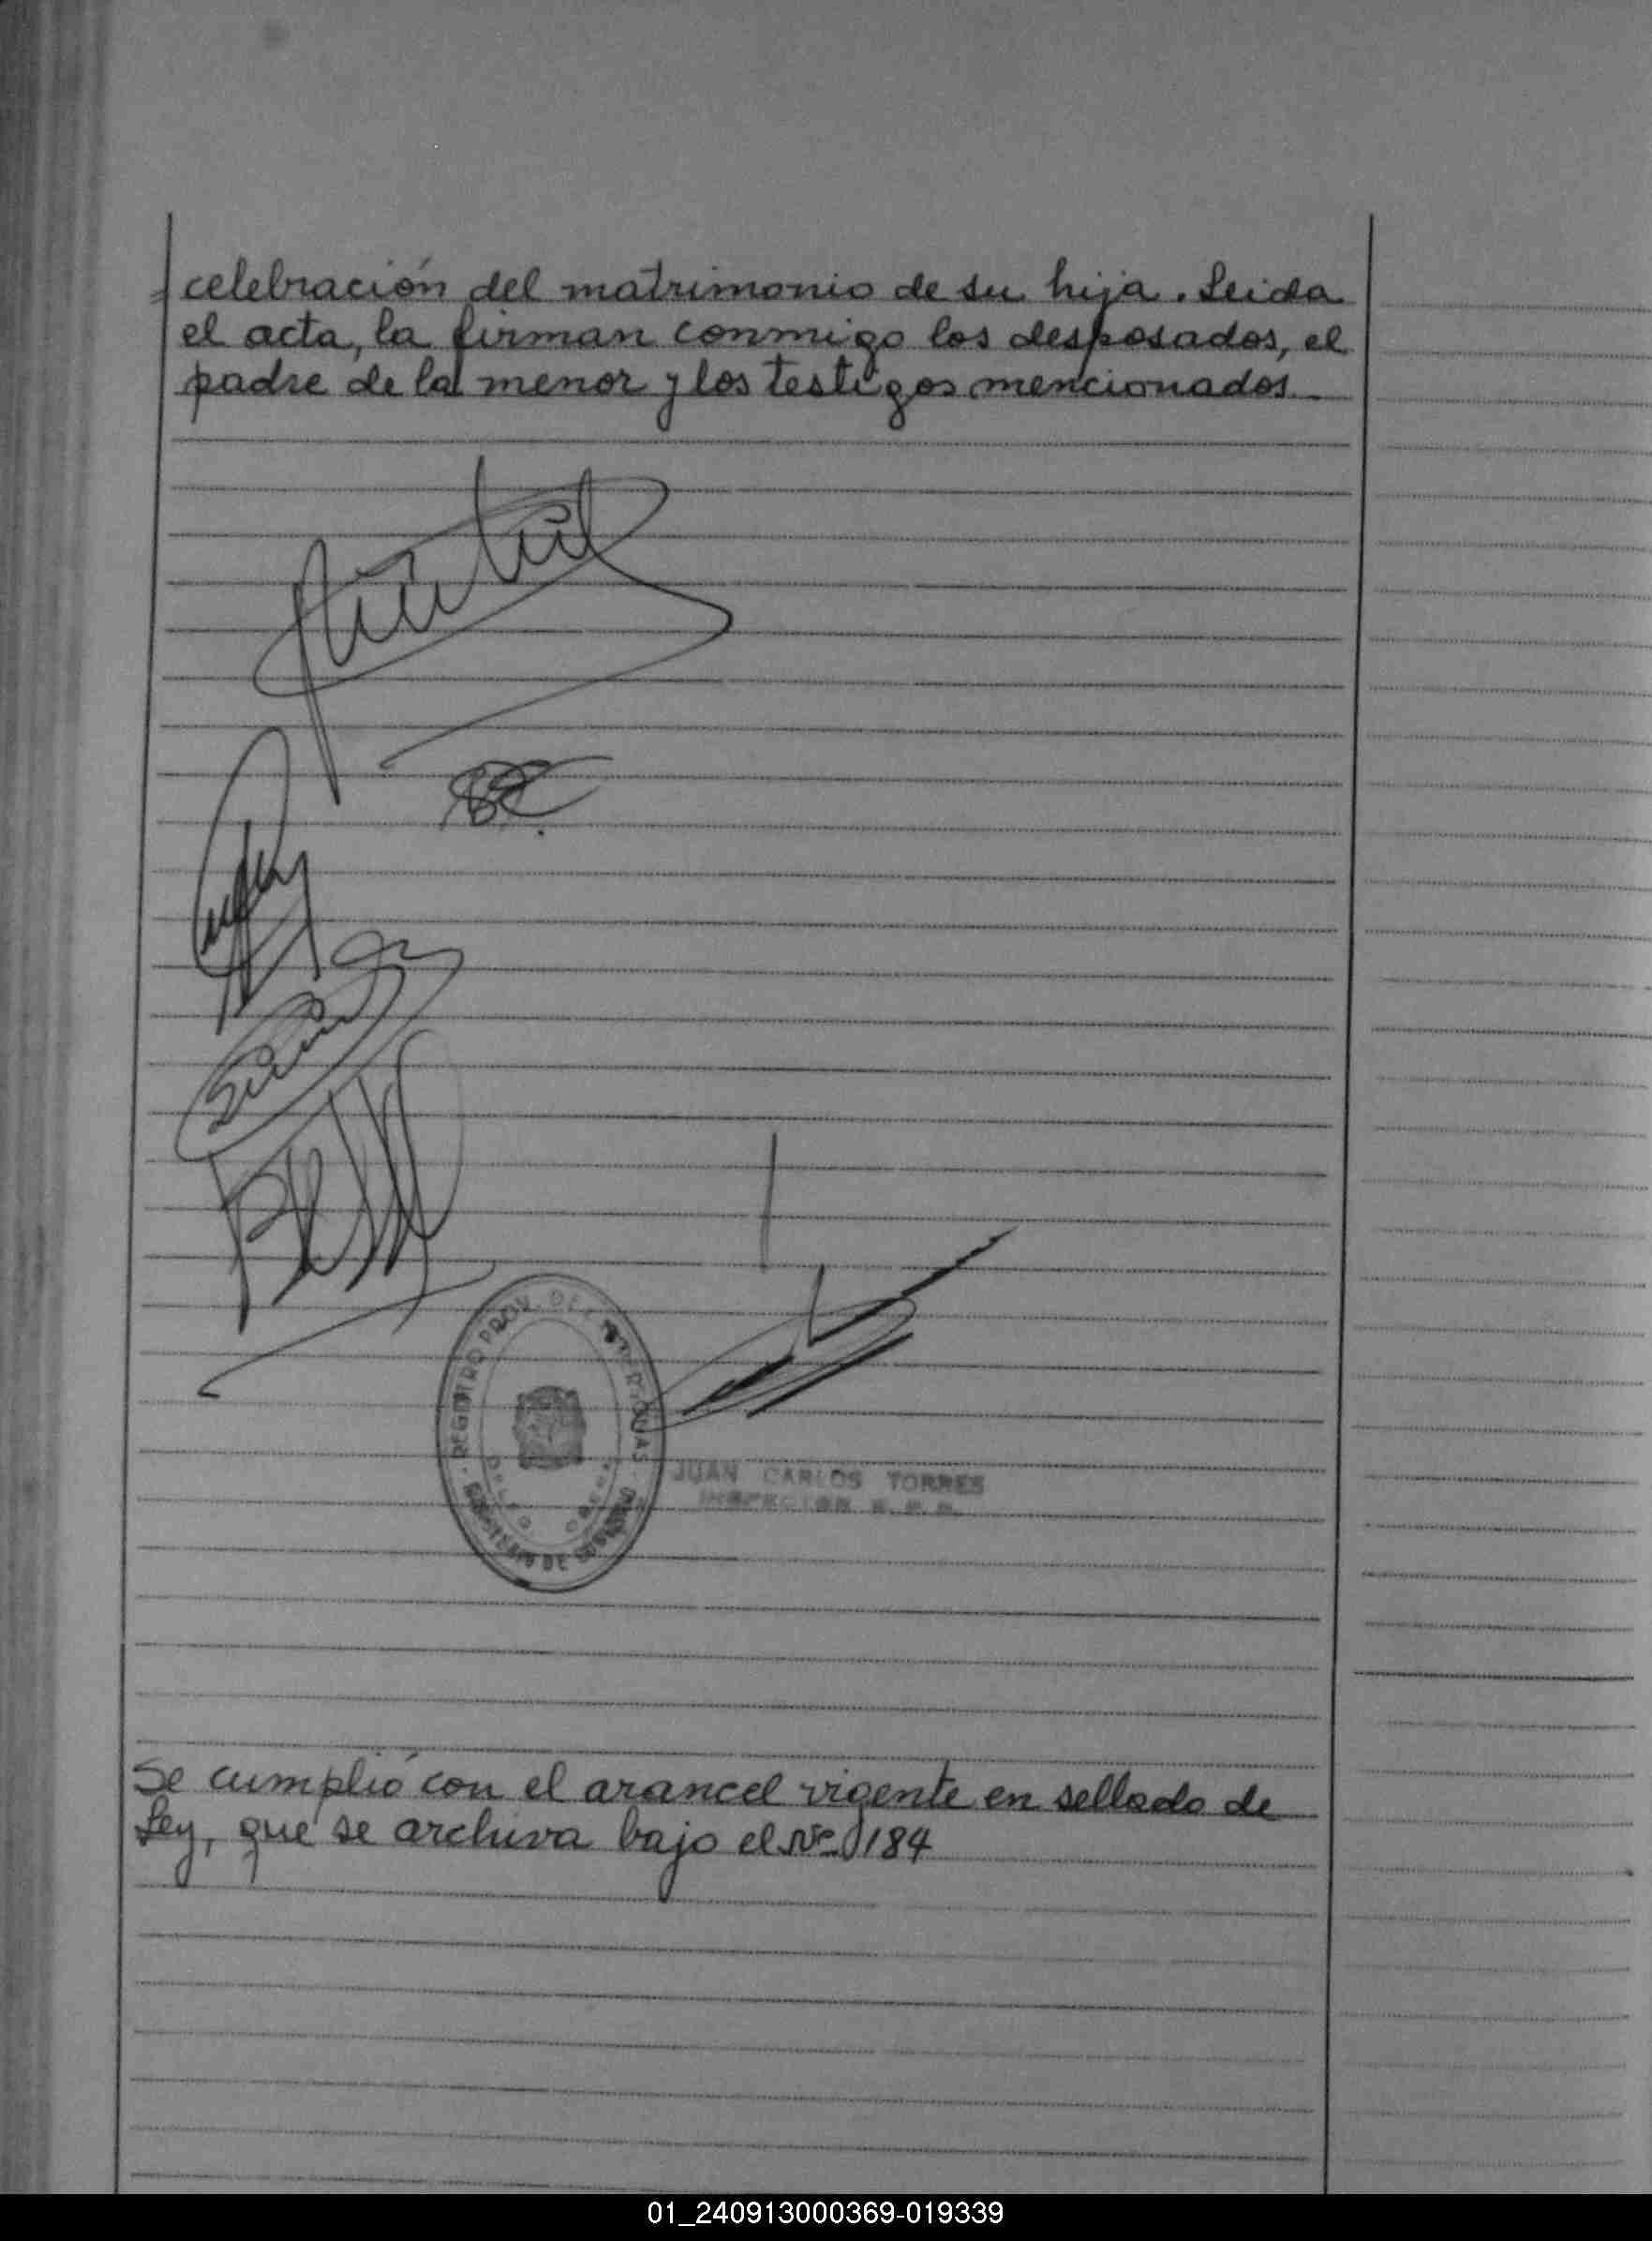 celebración del matrimonio de su hija. Leida
el acta, la firman conmigo los desposados, el
padre de la menor y los testigos mencionados
REGISTRO PROV. DE L
JUAN CARLOS TORRES
INSPECTOR
Se cumplió con el arancel vigente en sellado de
Ley, que se archiva bajo el Nº 184
01_240913000369-019339